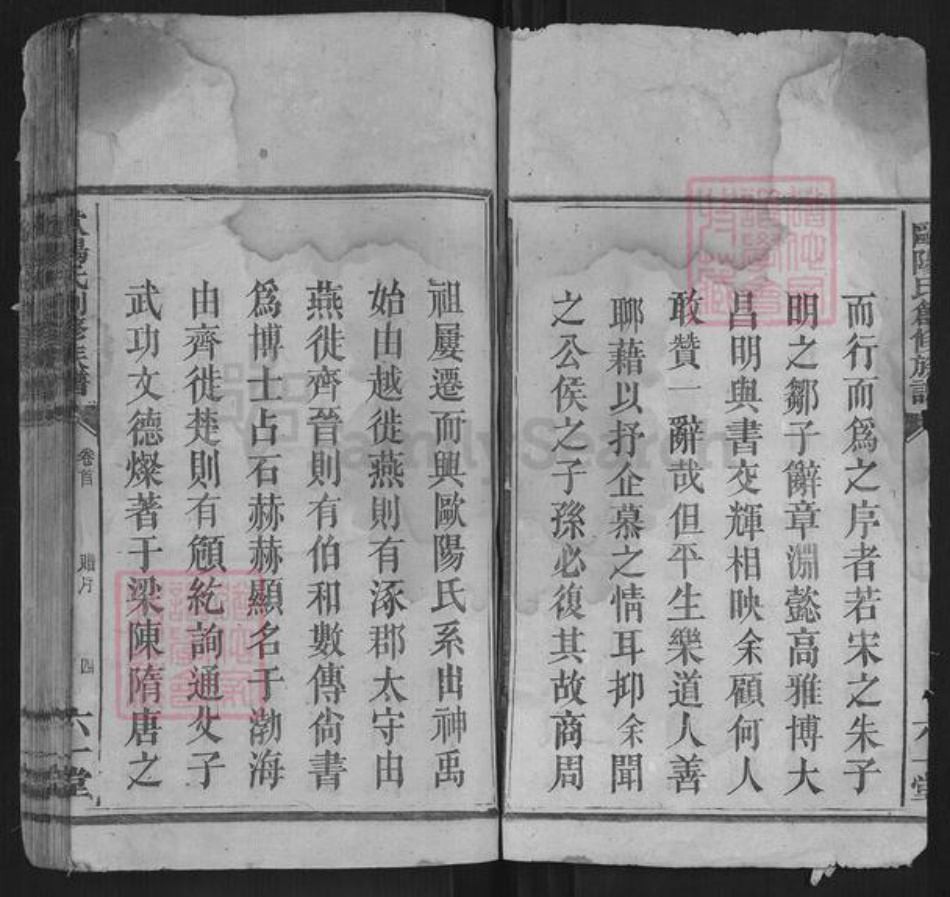 歐陽氏創修族譜
六一堂
而行而爲之序者若宋之朱子
明之鄒子辭章淵懿高雅博大
昌明與書交輝相映余顧何人
敢贊一辭哉但平生樂道人善
聊藉以抒企慕之情耳抑余聞
之公侯之子孫必復其故商周
祖屢遷而興歐陽氏系出神禹
始由越徙燕則有涿郡太守由
燕徙齊晉則有伯和數傳尙書
爲博士占石赫赫顯名于渤海
由齊徙楚則有頠紇詢通父子
武功文德燦著于梁陳隋唐之
歐陽氏創修族譜
卷首
四
六一堂
FamilySearch